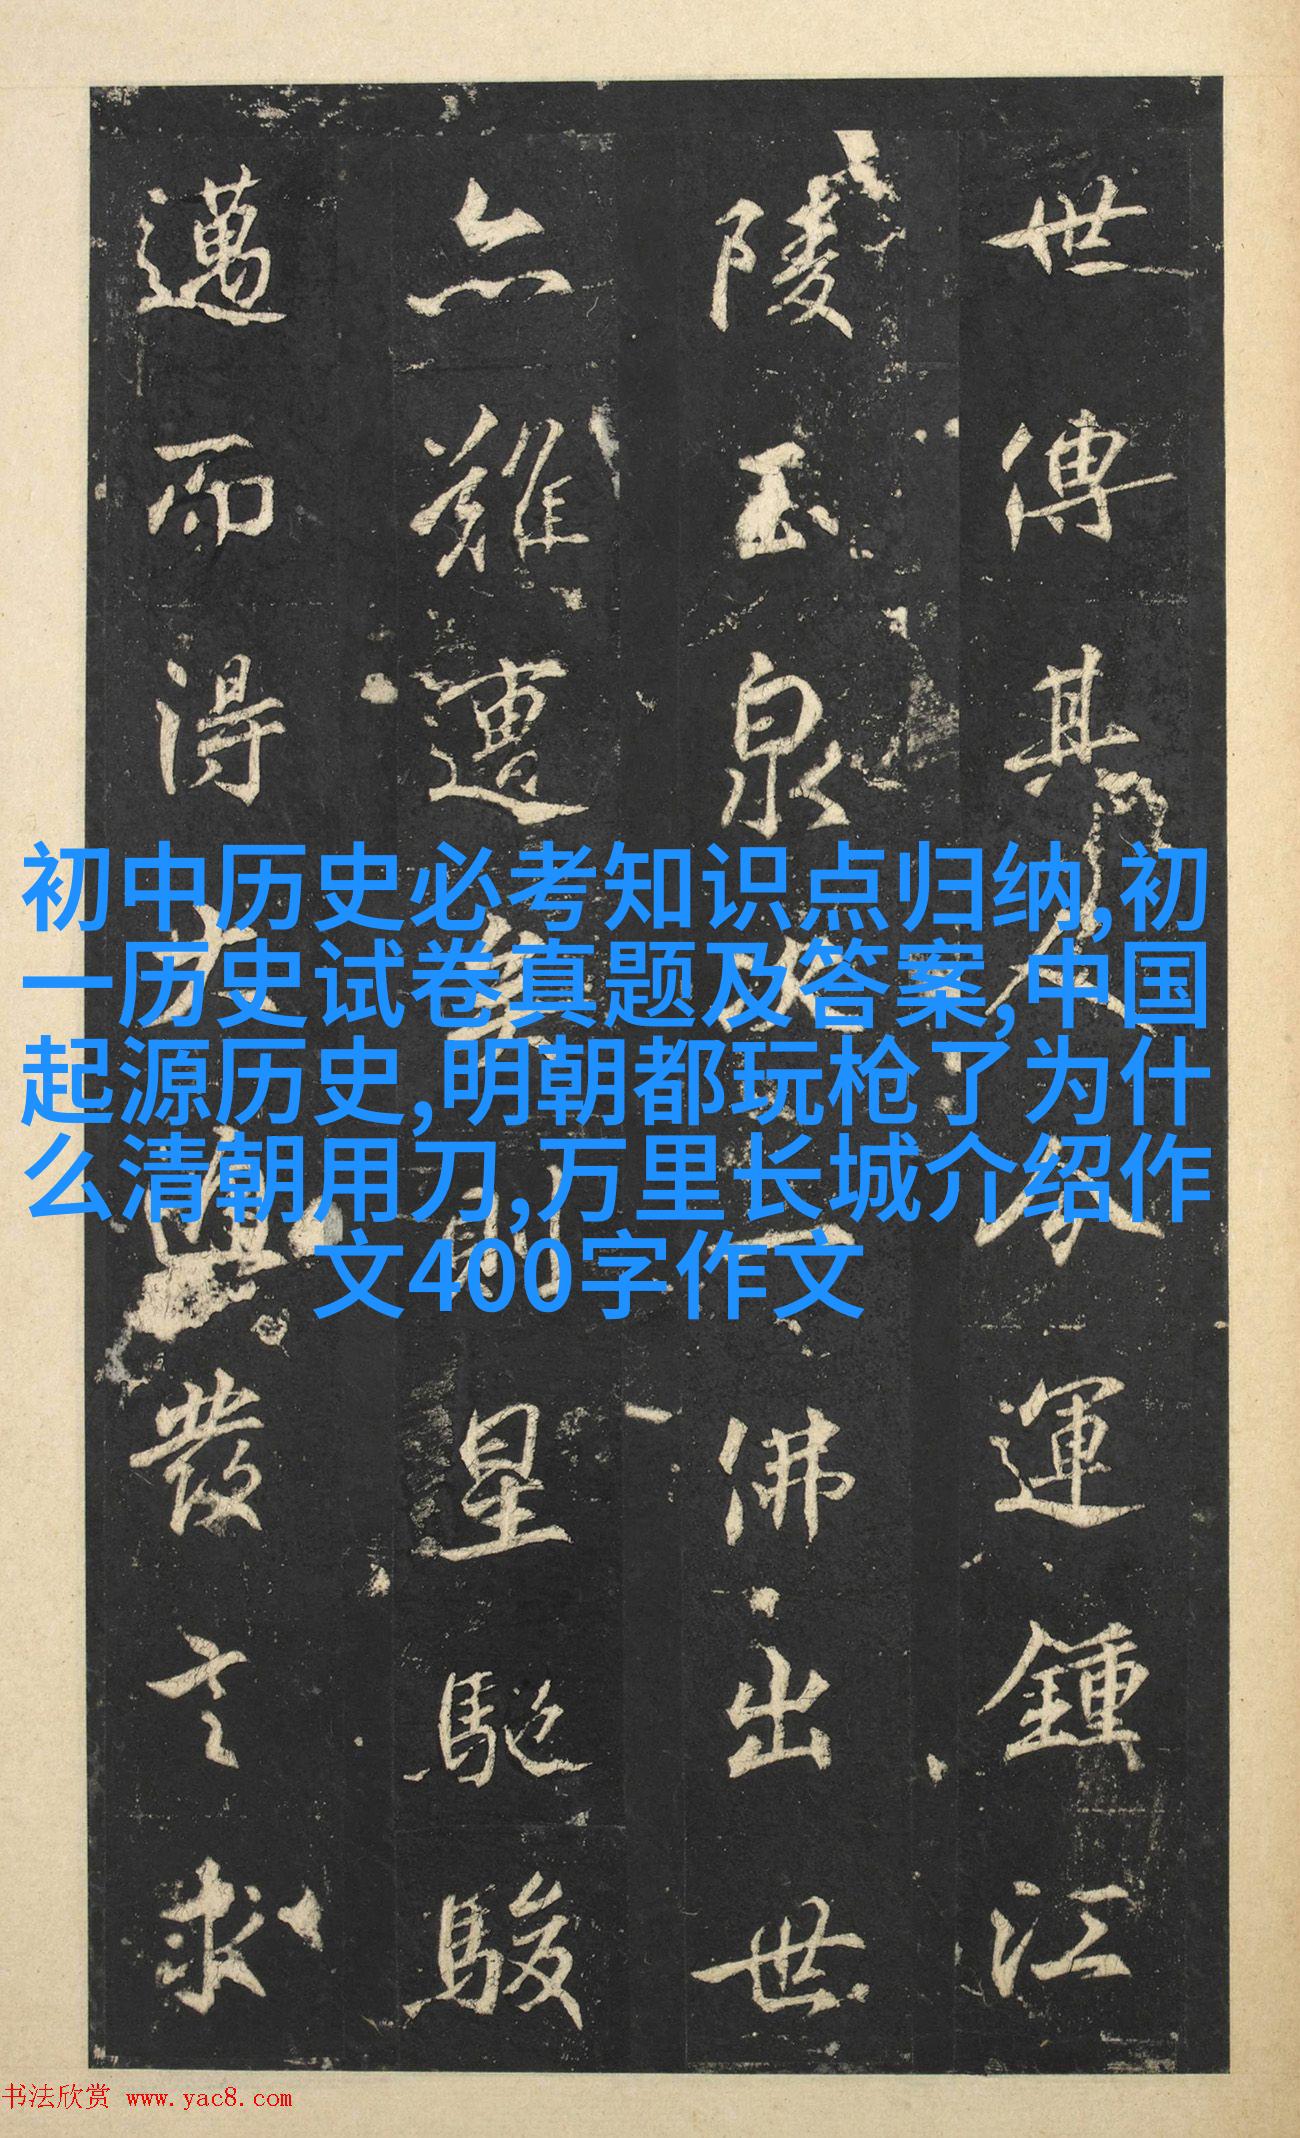 世傳其人運鍾江
陵玉泉一佛出世
亦難遭則星馳駿
邁而得大發言求
初中历史必考知识点归纳,初
一历史试卷真题及答案,中国
起源历史,明朝都玩枪了为什
么清朝用刀,万里长城介绍作
文400字作文
书法欣赏 www.yac8.com